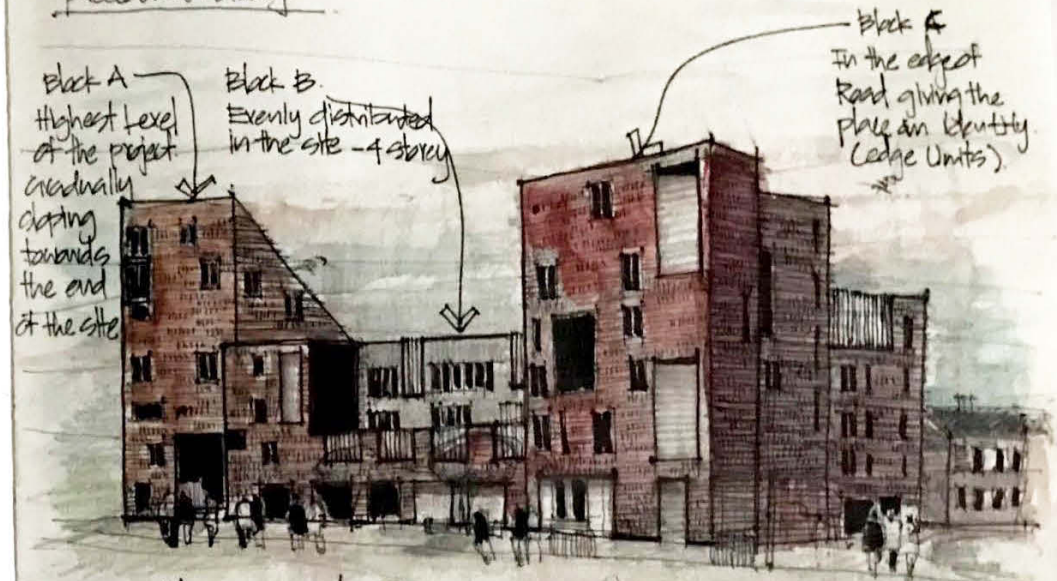 Block A
Highest Level
of the project
gradually
sloping
towards
the end
of the site
Block B.
Evenly distributed
in the site - 4 storey
Block C
In the edge of
Road giving the
place an Identity.
(edge Units).